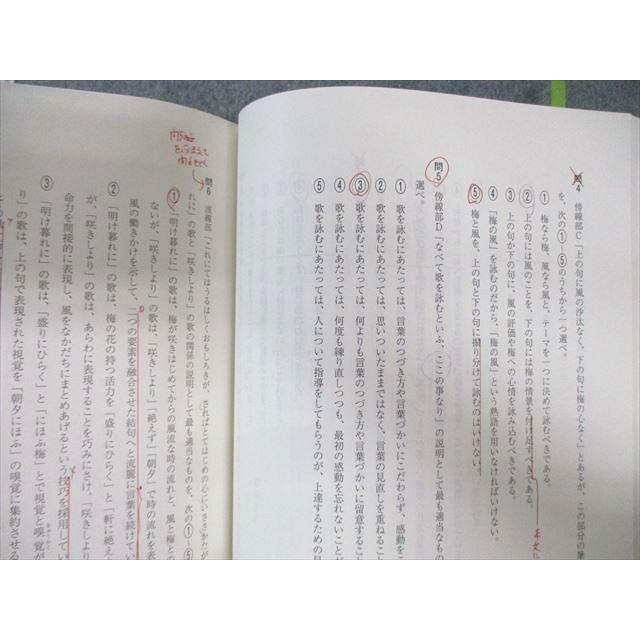 問4 傍線部C「上の句に風の沙汰なく、下の句に梅の心なく」とあるが、この部分の筆
を、次の①〜⑤のうちから一つ選べ。
① 梅なら梅、風なら風と、テーマを一つに決めて詠むべきである。
② 上の句には風のことを、下の句には梅の情景を付け足すべきである。
③ 上の句か下の句に、風の評価や梅への心情を詠み込むべきである。
④ 「梅の風」を詠むのだから、「梅の風」という熟語を用いなければいけない。
⑤ 梅と風を、上の句と下の句に振り分けて詠んではいけない。
本文
問5 傍線部D「なべて歌を詠むといふ、ここの事なり」の説明として最も適当なもの
選べ。
① 歌を詠むにあたっては、言葉のつづき方や言葉づかいにこだわらず、感動をこ
② 歌を詠むにあたっては、思いついたままではなく、言葉の見直しを重ねるこ
③ 歌を詠むにあたっては、何よりも言葉のつづき方や言葉づかいに留意すること
④ 歌を詠むにあたっては、何度も練り直しつつも、最初の感動を忘れないことが
⑤ 歌を詠むにあたっては、人について指導をしてもらうのが、上達するための早
問6 波線部「これにてはうるはしくおもしろきが、されどとてはじめの心にいささかたが
れに」の歌と「咲きしより」の歌の関係の説明として最も適当なものを、次の①〜⑤
① 「明け暮れに」の歌は、梅が咲きはじめてからの風流な時の流れと、風と梅との
ないが、「咲きしより」の歌は、「咲きしより」「絶えず」「朝夕」で時の流れを表
風の働きかけを示して、二つの要素を融合させた結句へと流麗に言葉を続けてい
② 「明け暮れに」の歌は、梅の花の持つ活力を「盛りにひらく」と「軒に絶え
が、「咲きしより」の歌は、あらわに表現することを巧みにさけ、「咲きしより
命力を間接的に表現し、風をなかだちにまとめあげるという技巧を採用してい
③ 「明け暮れに」の歌は、「盛りにひらく」と「にほふ梅」とで視覚と嗅覚が
り」の歌は、上の句で表現された視覚を「朝夕にほふ」の嗅覚に集約させる